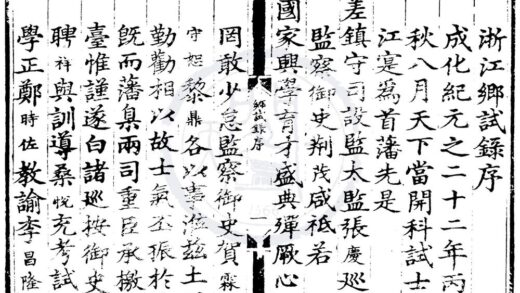 浙江鄉試錄序
成化紀元之二十二年丙
秋八月天下當開科試士
江寔為首藩先是
差鎮守司設監太監張慶巡
監察御史荆茂咸祗若
國家興學育才盛典殫厥心
鄉試錄序 一
罔敢少怠監察御史賀霖
守恕黎鼎各以事涖茲土
勤勸相以故士氣丕振於
既而藩臬兩司重臣承檄
臺惟謹遂白諸巡按御史
聘祥與訓導桑悅充考試
學正鄭時佐教諭李昌隆